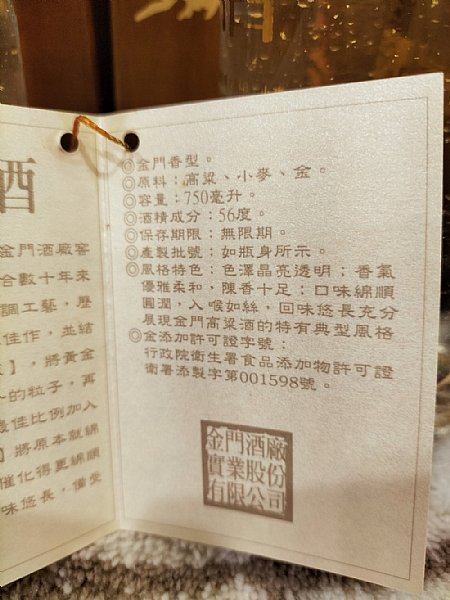 酒
金門酒廠窖
合數十年來
調工藝，歷
佳作，並結
】，將黃金
的粒子，再
最佳比例加入
】將原本就綿
催化得更綿順
味悠長，備受
◎金門香型。
◎原料：高粱、小麥、金。
◎容量：750毫升。
◎酒精成分：56度。
◎保存期限：無限期。
◎產製批號：如瓶身所示。
◎風格特色：色澤晶亮透明；香氣
優雅柔和，陳香十足；口味綿順
圓潤，入喉如絲，回味悠長充分
展現金門高粱酒的特有典型風格
◎金添加許可證字號：
行政院衛生署食品添加物許可證
衛署添製字第001598號。
金門酒廠
實業股份
有限公司